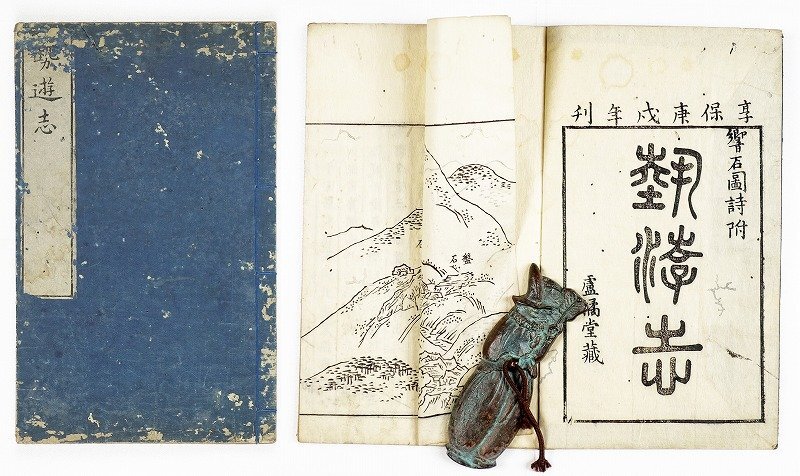 勢遊志
享保庚戌年刊
響石圖詩附
勢游志
盧橘堂藏
石